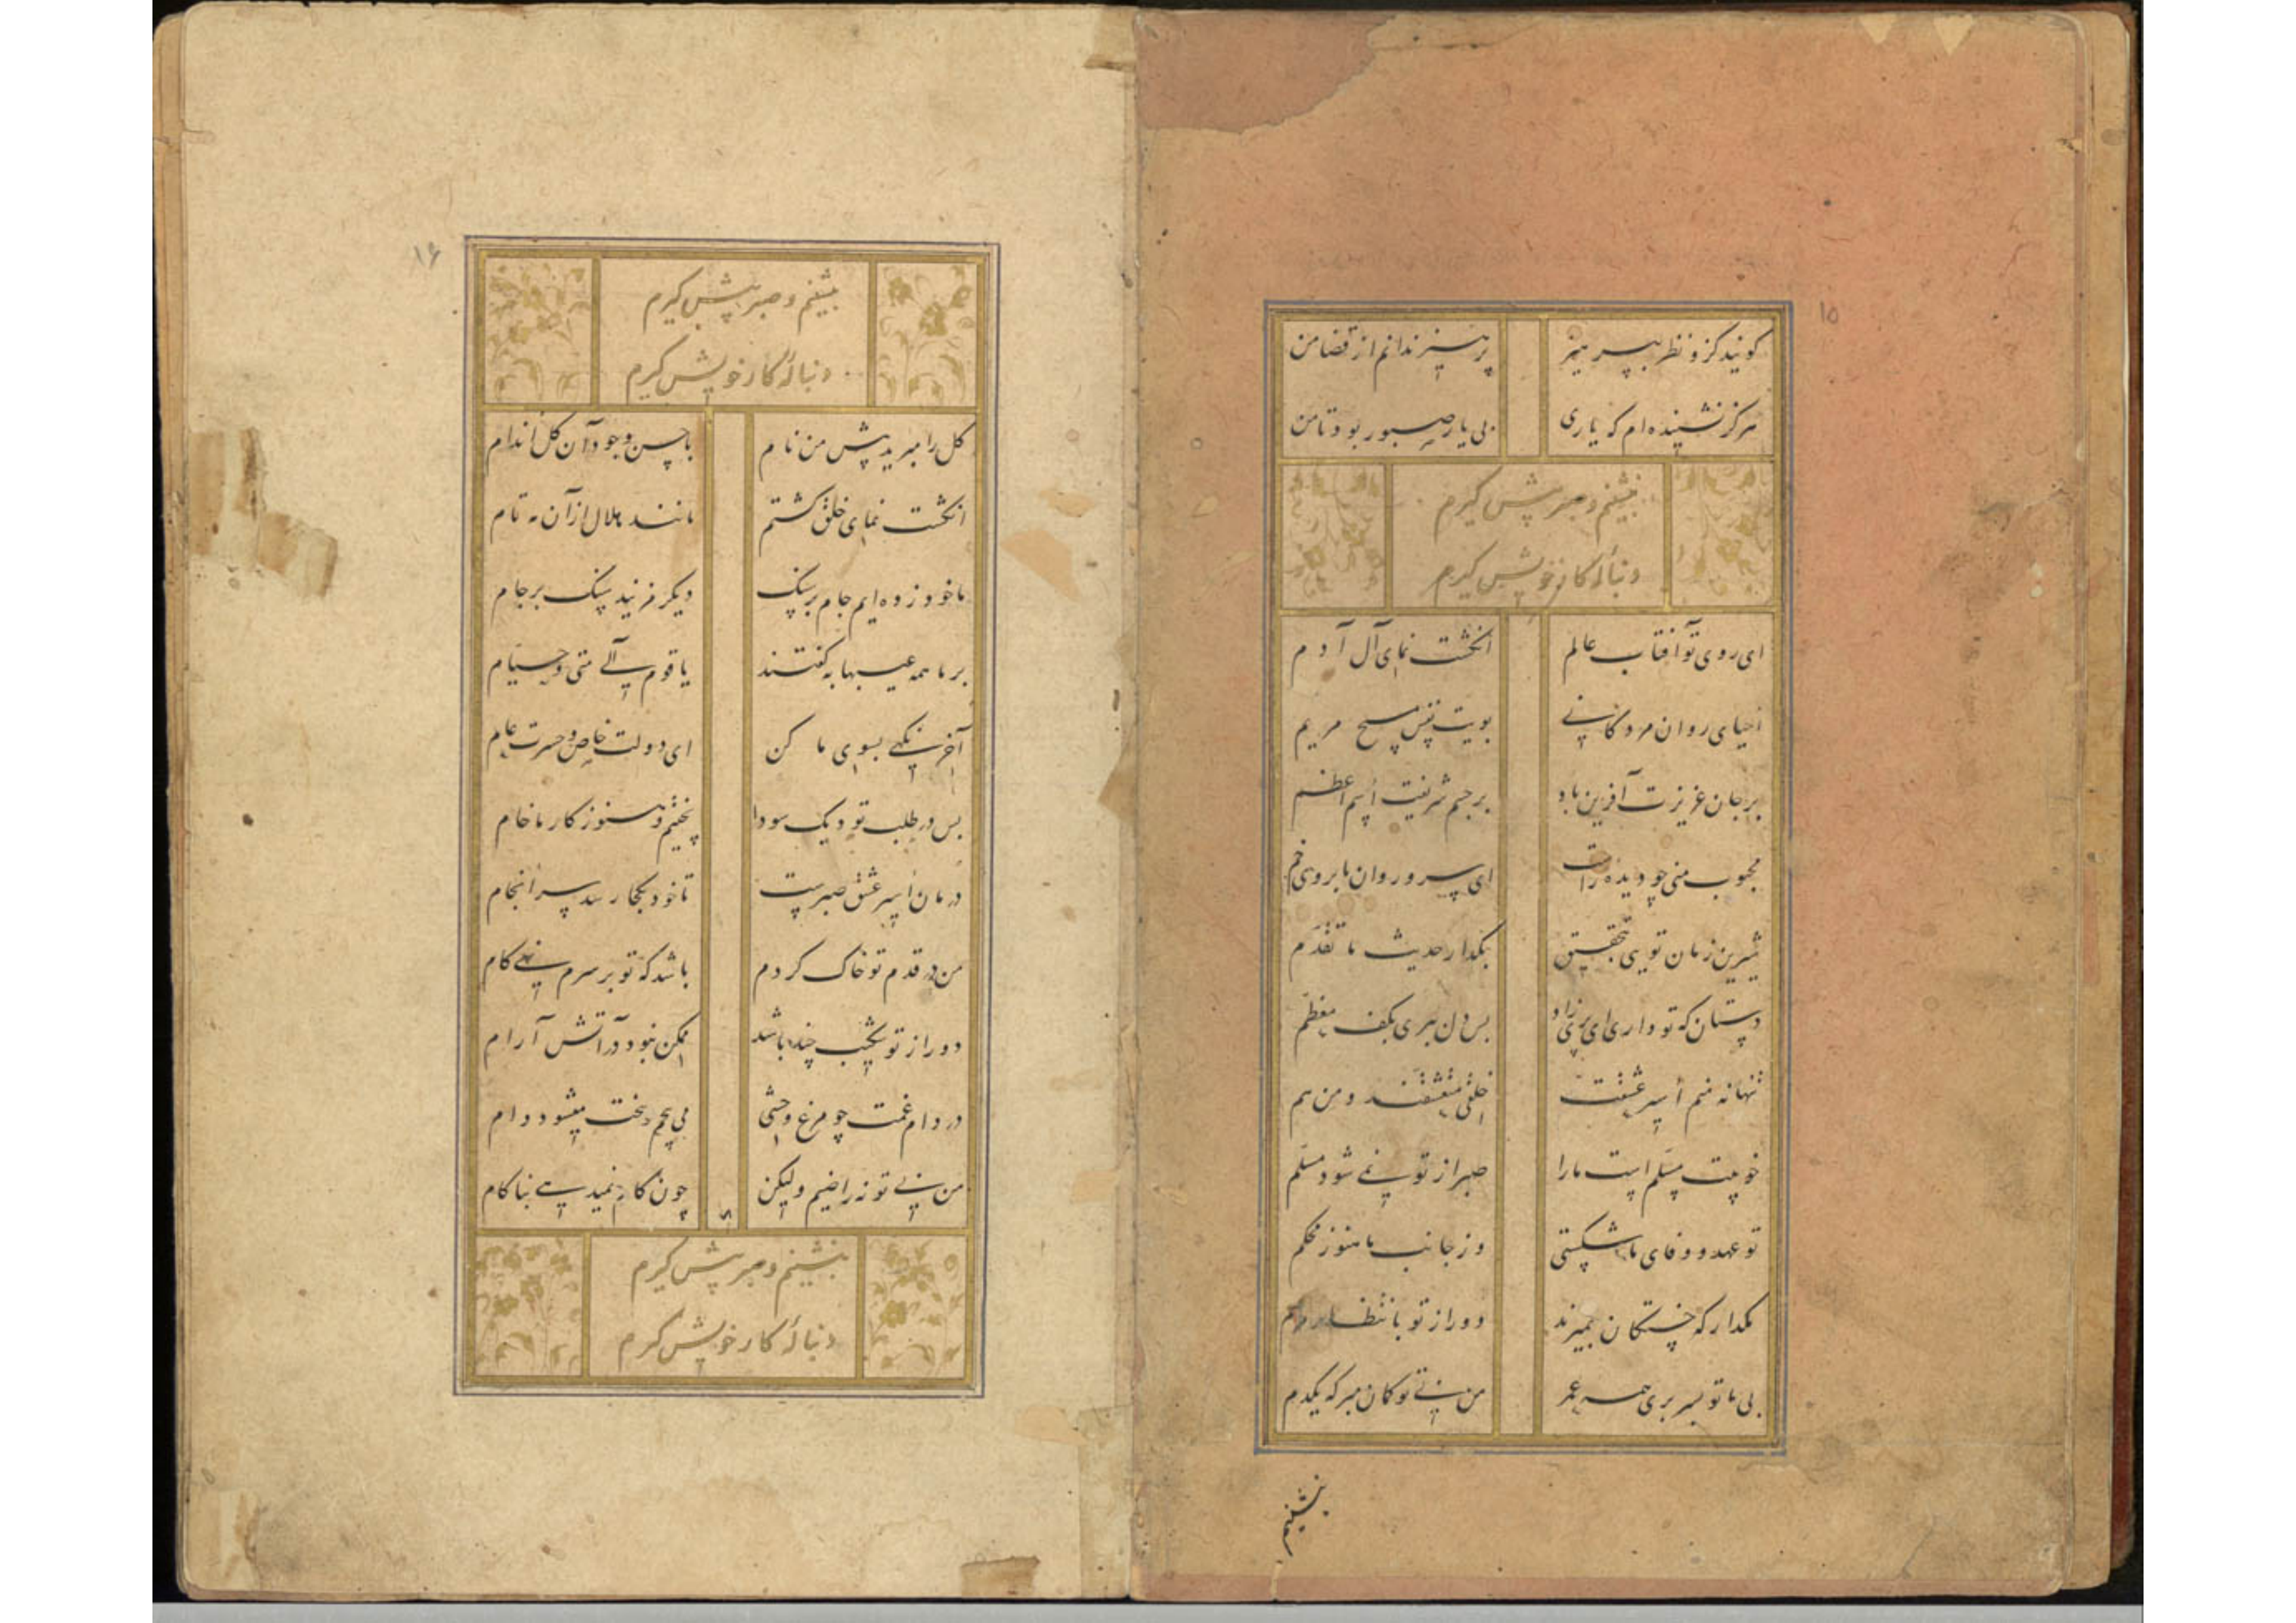 ۱۵
کویند کزو نظر بپرهیز پرهیز ندانم از قضا من
هرکز نشنیده ام که یاری بی یار صبور بود تا من
بنشینم و صبر پیش کیرم
دنبالهٔ کار خویش کیرم
ای روی تو آفتاب عالم انکشت نمای آل آدم
احیای روان مردکانی بویت نفس مسیح مریم
بر جان عزیزت آفرین باد بر جسم شریفت اسم اعظم
محبوب منی چو دیده راست ای سرو روان با بروی خم
شیرین زمان تویی بتحقیق بکذار حدیث ما تقدم
دستان که تو داری ای پری زاد بس دل ببری بکف معظم
تنها نه منم اسیر عشقت خلقی متعشقند و من هم
خوبیت مسلم است ما را صبر از تو نمی شود مسلم
تو عهد و وفای ما شکستی وز جانب ما هنوز محکم
مکذار که خستکان بمیرند دور از تو بانتظار مرهم
بی ما تو بسر بری همه عمر من بی تو کمان مبر که یکدم
بنشینم
۱۶
بنشینم و صبر پیش کیرم
دنبالهٔ کار خویش کیرم
کل را مبرید پیش من نام با حسن وجود آن کل اندام
انکشت نمای خلق کشتم مانند هلال از آن مه تام
ما خود زده ایم جام بر سنک دیکر مزنید سنک بر جام
بر ما همه عیبها بکفتند یا قوم الی متی و حتیام
آخر نکهی بسوی ما کن ای دولت خاص و حسرت عام
بس در طلب تو دیک سودا پختیم و هنوز کار ما خام
درمان اسیر عشق صبرست تا خود بکجا رسد سرانجام
من در قدم تو خاک کردم باشد که تو بر سرم نهی کام
دور از تو شکیب چند باشد ممکن نبود در آتش آرام
در دام غمت چو مرغ وحشی می پیچم و سخت میشود دام
من بی تو نه راضیم ولیکن چون کام نمیدهی بناکام
بنشینم و صبر پیش کیرم
دنبالهٔ کار خویش کیرم